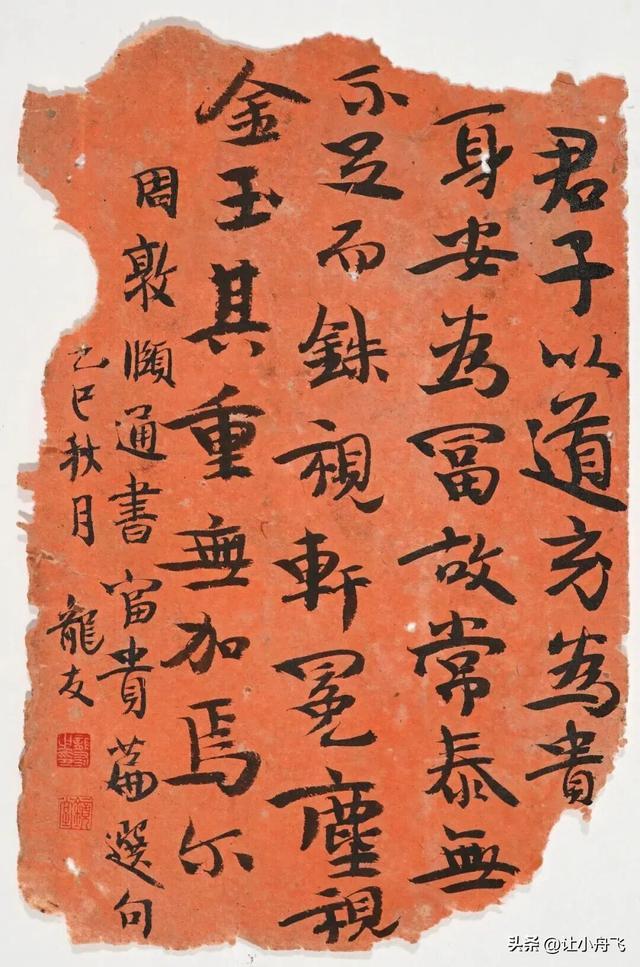 君子以道充為貴
身安為冨故常泰無
不足而銖視軒冕塵視
金玉其重無加焉尔
周敦頤通書富貴篇選句
乙巳秋月
龍友
头条 @让小舟飞